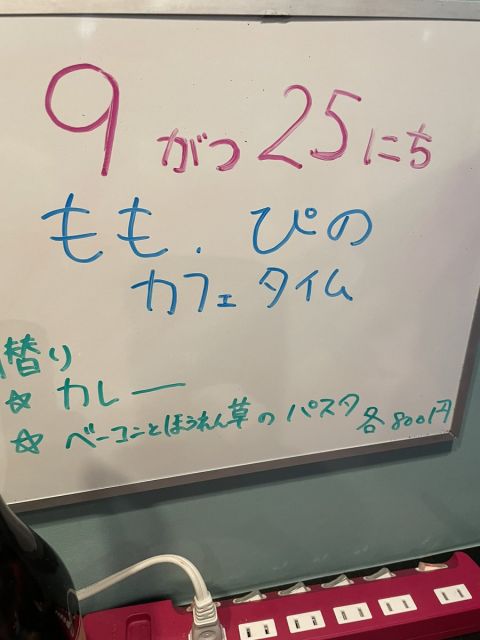 9がつ25にち
もも.ぴの
カフェタイム
替り
☆カレー
☆ベーコンとほうれん草のパスタ各800円